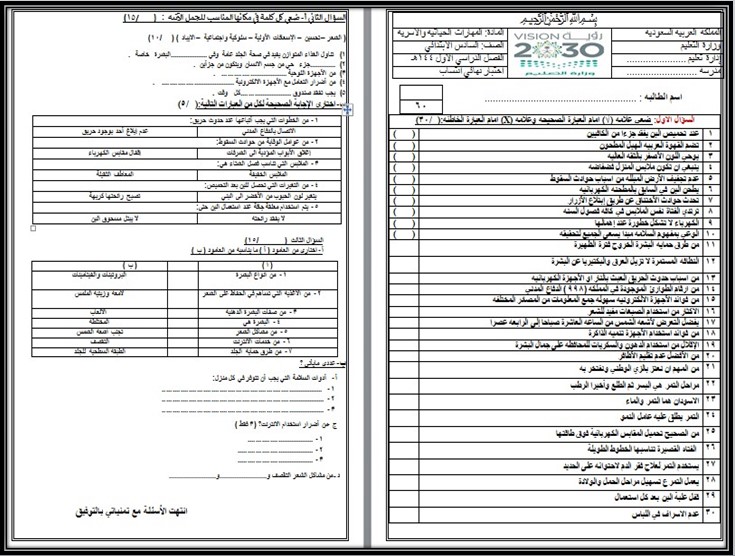 بسم الله الرحمن الرحيم
المملكة العربية السعودية
وزارة التعليم
إدارة تعليم ....................
مدرسة ....................
VISION رؤية
2030
وزارة التعليم
المادة: المهارات الحياتية والأسرية
الصف: السادس الابتدائي
الفصل الدراسي الأول ١٤٤هـ
اختبار نهائي انتساب
اسم الطالبة: ....................
٦٠
السؤال الأول: ضعي علامة (√) امام العبارة الصحيحة وعلامة (X) امام العبارة الخاطئة: ( /٣٠)
١ عند تحميص البن يفقد جزءا من الكافيين ( )
٢ تضم القهوة العربية الهيل المطحون ( )
٣ يوحي اللون الأصفر بالثقة العالية ( )
٤ ينبغي ان تكون ملابس المنزل فضفاضة ( )
٥ عدم تجفيف الأرض المبللة من اسباب حوادث السقوط ( )
٦ يطحن البن في السابق بالمطحنة الكهربائية ( )
٧ تحدث حوادث الأختناق عن طريق إبتلاع الأزرار ( )
٨ ترتدي الفتاة نفس الملابس في كافة فصول السنة ( )
٩ الكهرباء لا تشكل خطورة عند إهمالها ( )
١٠ الوعي بمفهوم السلامة مبدا يسعى الجميع لتحقيقه ( )
١١ من طرق حماية البشرة الخروج فترة الظهيرة
١٢ النظافة المستمرة لا تزيل العرق والبكتيريا عن البشرة
١٣ من اسباب حدوث الحريق العبث بالنار او الأجهزة الكهربائية
١٤ من ارقام الطوارئ الموجودة في المملكة (٩٩٨) الدفاع المدني
١٥ من فوائد الأجهزة الالكترونية سهولة جمع المعلومات من المصادر المختلفة
١٦ الاكثار من استخدام الصبغات مفيد للشعر
١٧ يفضل التعرض لأشعة الشمس من الساعة العاشرة صباحا إلى الرابعة عصرا
١٨ من فوائد استخدام الأجهزة تنمية الذاكرة
١٩ الإقلال من استخدام الدهون والسكريات للمحافظة على جمال البشرة
٢٠ من الأفضل عدم تقليم الأظافر
٢١ من المهم ان نعتز بالزي الوطني ونفتخر به
٢٢ مراحل التمر هي البسر ثم الطلع وأخيرا الرطب
٢٣ الاسودان هما التمر والماء
٢٤ التمر يطلق عليه عامل النمو
٢٥ من الصحيح تحميل المقابس الكهربائية فوق طاقتها
٢٦ الفتاة القصيرة تناسبها الخطوط الطويلة
٢٧ يستخدم التمر لعلاج فقر الدم لاحتوائه على الحديد
٢٨ يعمل التمر ع تسهيل مراحل الحمل والولادة
٢٩ قفل علبة البن بعد كل استعمال
٣٠ عدم الاسراف في اللباس
السؤال الثاني أ- ضعي كل كلمة في مكانها المناسب للجمل الآتية : ( /١٥)
(الصغر –تحسين – الإسعافات الأولية – سلوكية واجتماعية – الايباد ) ( /١٠)
١) تناول الغذاء المتوازن يفيد في صحة الجلد عامة وفي ..........البشرة خاصة .
٢) ..........جزء حي من جسم الانسان ويتكون من جزأين .
٣) من الأجهزة اللوحية ..........
٤) من أضرار التعامل مع الأجهزة الالكترونية ..........
٥) يجب تفقد صندوق ..........كل وقت .
ب- اختاري الإجابة الصحيحة لكل من العبارات التالية: ( /٥)
١ - من الخطوات التي يجب اتباعها عند حدوث حريق:
الاتصال بالدفاع المدني
عدم إبلاغ أحد بوجود حريق
٢ - من عوامل الوقاية من حوادث السقوط:
إغلاق الأبواب المؤدية الى الشرفات
إقفال مقابس الكهرباء
٣ - الملابس التي تناسب فصل الشتاء هي:
الملابس الخفيفة
المعاطف الثقيلة
٤ - من التغيرات التي تحصل للبن بعد التحميص:
يتغير لون الحبوب من الأخضر الى البني
تصبح رائحتها كريهة
٥ - يتم استخدام ملعقة جافة عند استعمال البن حتى:
لا يفقد رائحته
لا يبتل مسحوق البن
السؤال الثالث ( /١٥)
أ- اختاري من العامود ( أ ) ما يناسبه من العامود ( ب )
( أ ) ( ب )
١ - من انواع البشرة البروتينات والفيتامينات
٢ - من الاغذية التي تساهم في الحفاظ على الشعر لامعة وزيتية الملمس
٣ - من صفات البشرة الدهنية الألعاب
٤ - البشرة هي المختلطة
٥ - من مشاكل الشعر تجنب اشعة الشمس
٦ - من خدمات الانترنت التقصف
٧ - من طرق حماية الجلد الطبقة السطحية للجلد
ب- عددي مايأتي؟
أ- أدوات السلامة التي يجب أن تتوفر في كل منزل:
١ - ....................
٢ - ....................
٣ - ....................
ج من أضرار استخدام الانترنت؟ (٣ فقط )
١ - ....................
٢ - ....................
٣ - ....................
د -من مشاكل الشعر التقصف و....................و....................
انتهت الأسئلة مع تمنياتي بالتوفيق